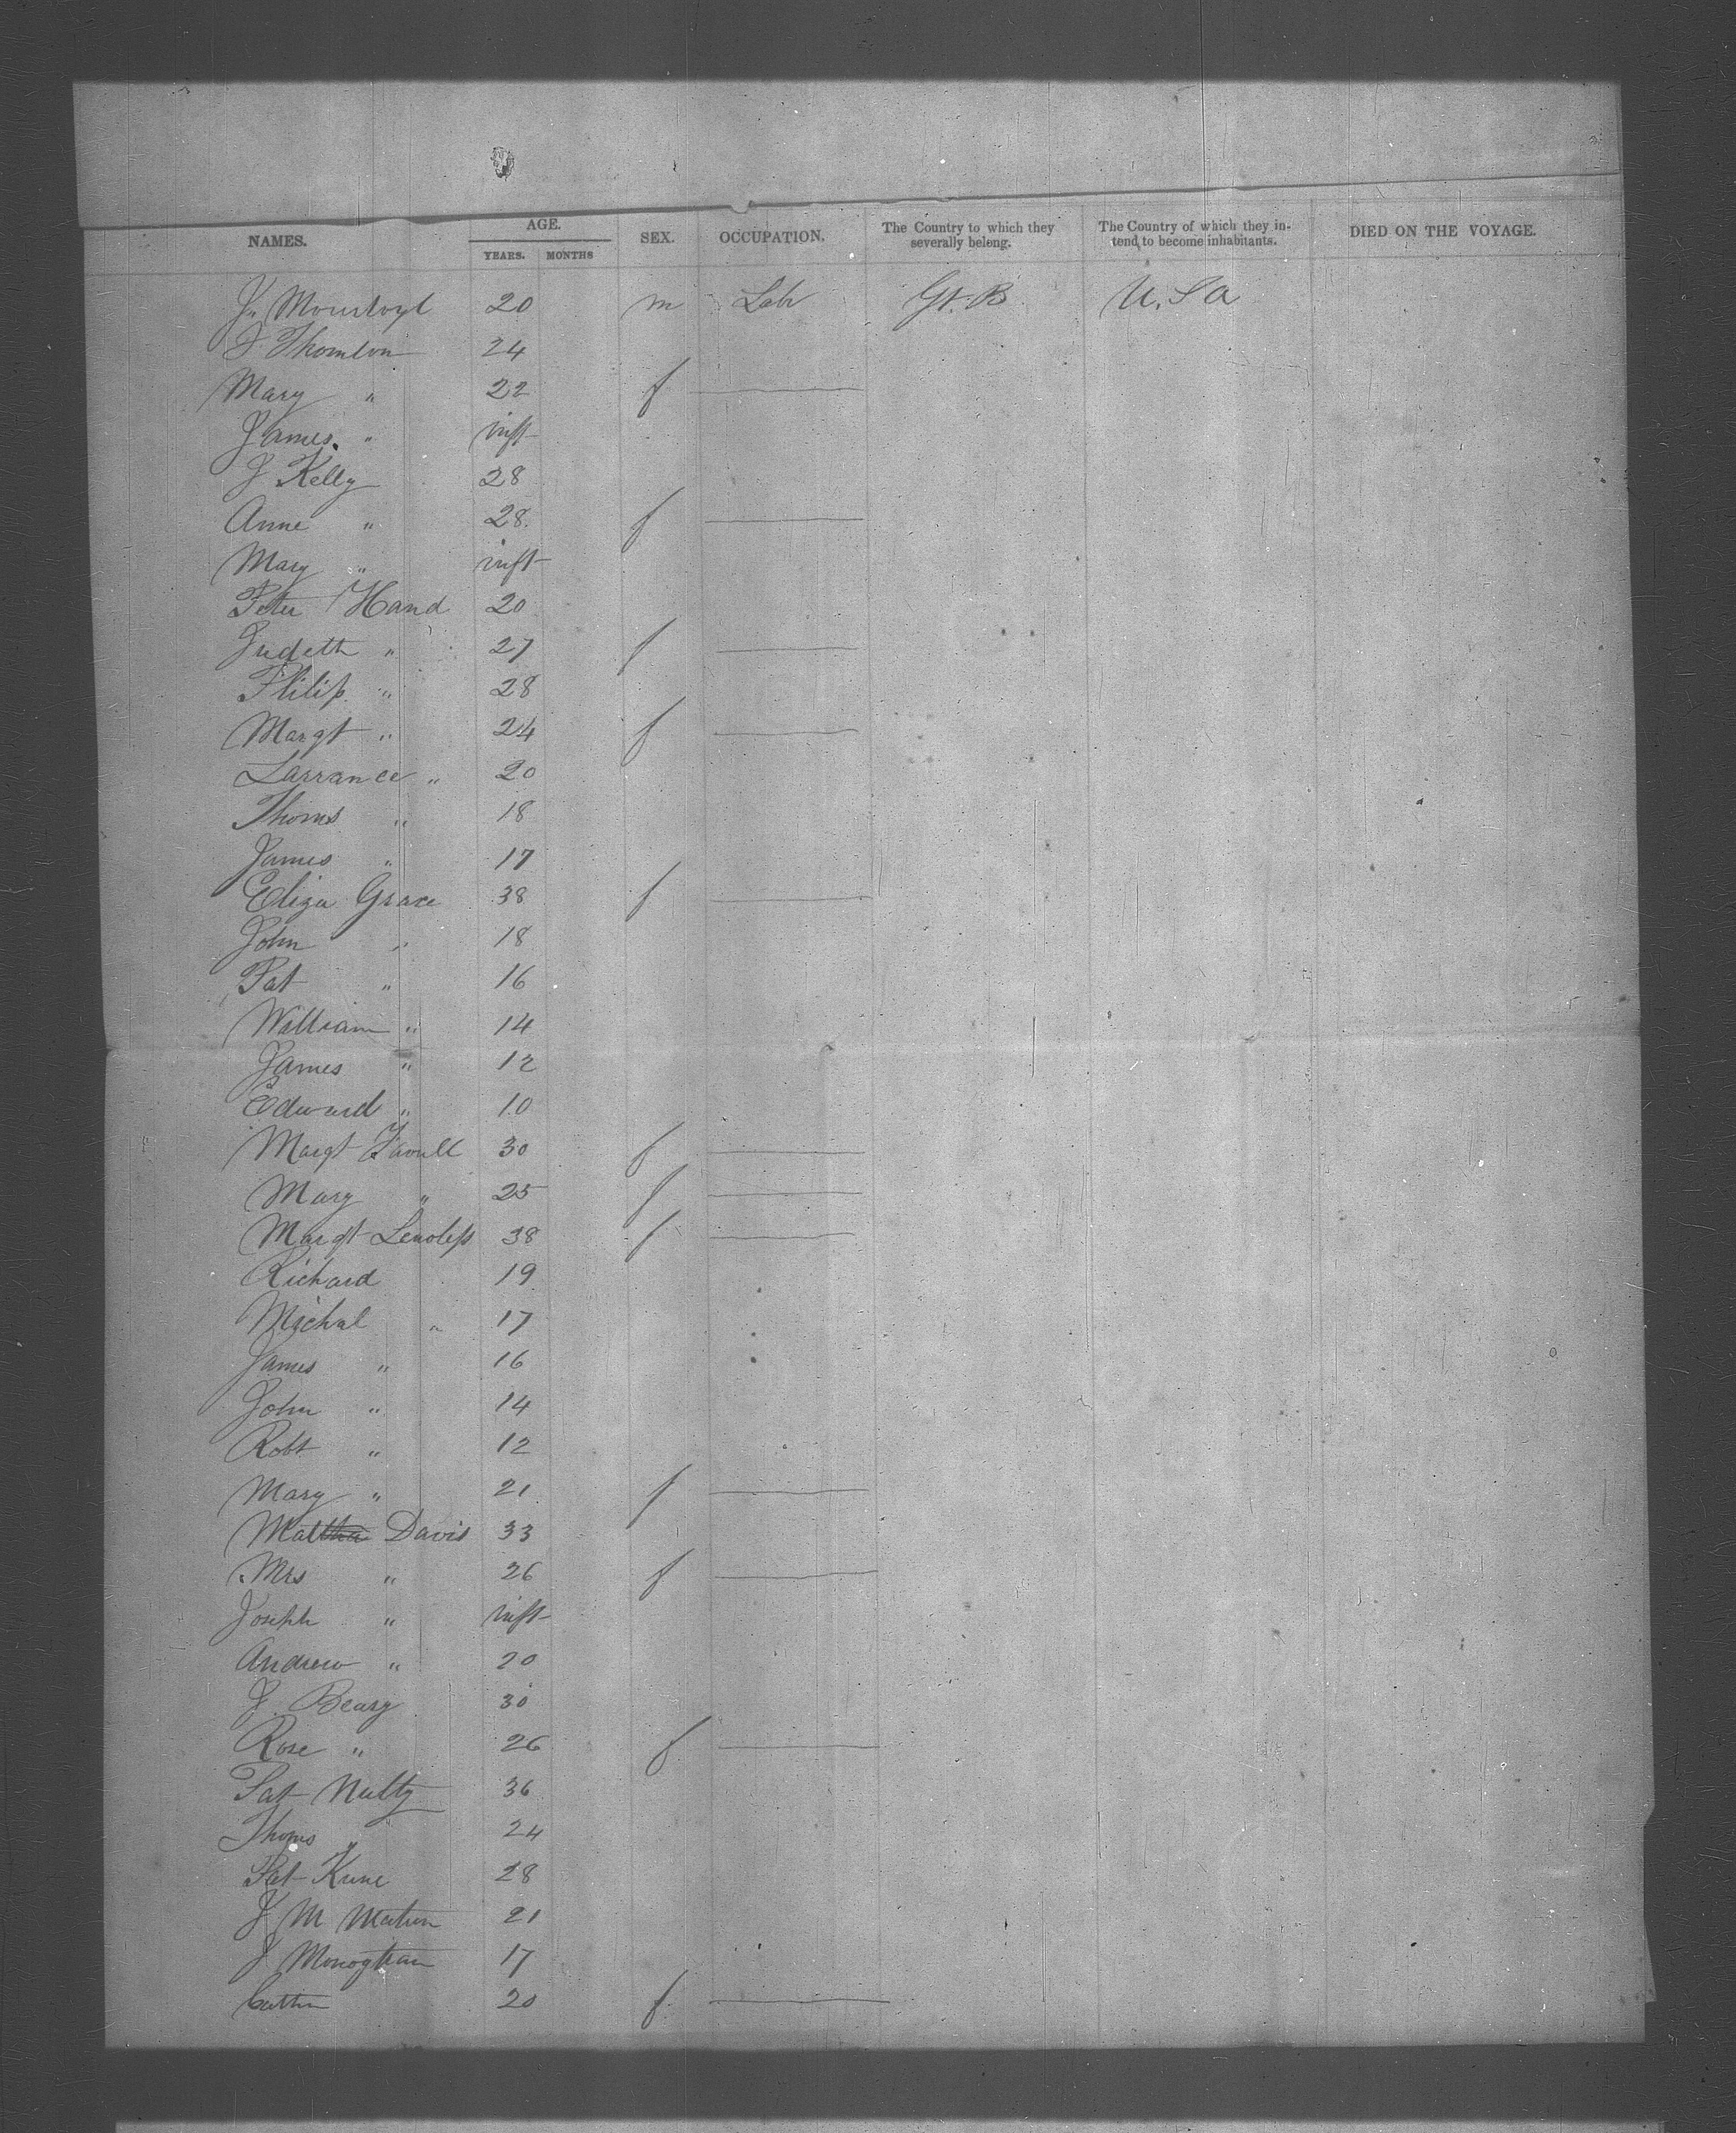 NAMES. AGE. SEX. OCCUPATION. The Country to which they severally belong. The Country of which they intend to become inhabitants. DIED ON THE VOYAGE.
YEARS. MONTHS
J. 20 m Lab Gt. B U.S.A
J Thornton 24
Mary " 22 f
James " inft
J Kelly 28
Anne " 28 f
Mary " inft
Peter Hand 20
Judeth " 27 f
Philip " 28
Margt " 24 f
Larrance " 20
Thoms " 18
James " 17
Eliza Grace 38 f
John " 18
Pat " 16
William " 14
James " 12
Edward " 10
Margt 30 f
Mary " 25 f
Margt 38 f
Richard 19
Michal " 17
James " 16
John " 14
Robt " 12
Mary " 21 f
Davis 33
Mrs " 26 f
Joseph " inft
Andrew " 20
J. Beary 30
Rose " 26 f
Pat Nulty 36
Thoms " 24
Pat 28
J M 21
J Monoghan 17
Cathn 20 f